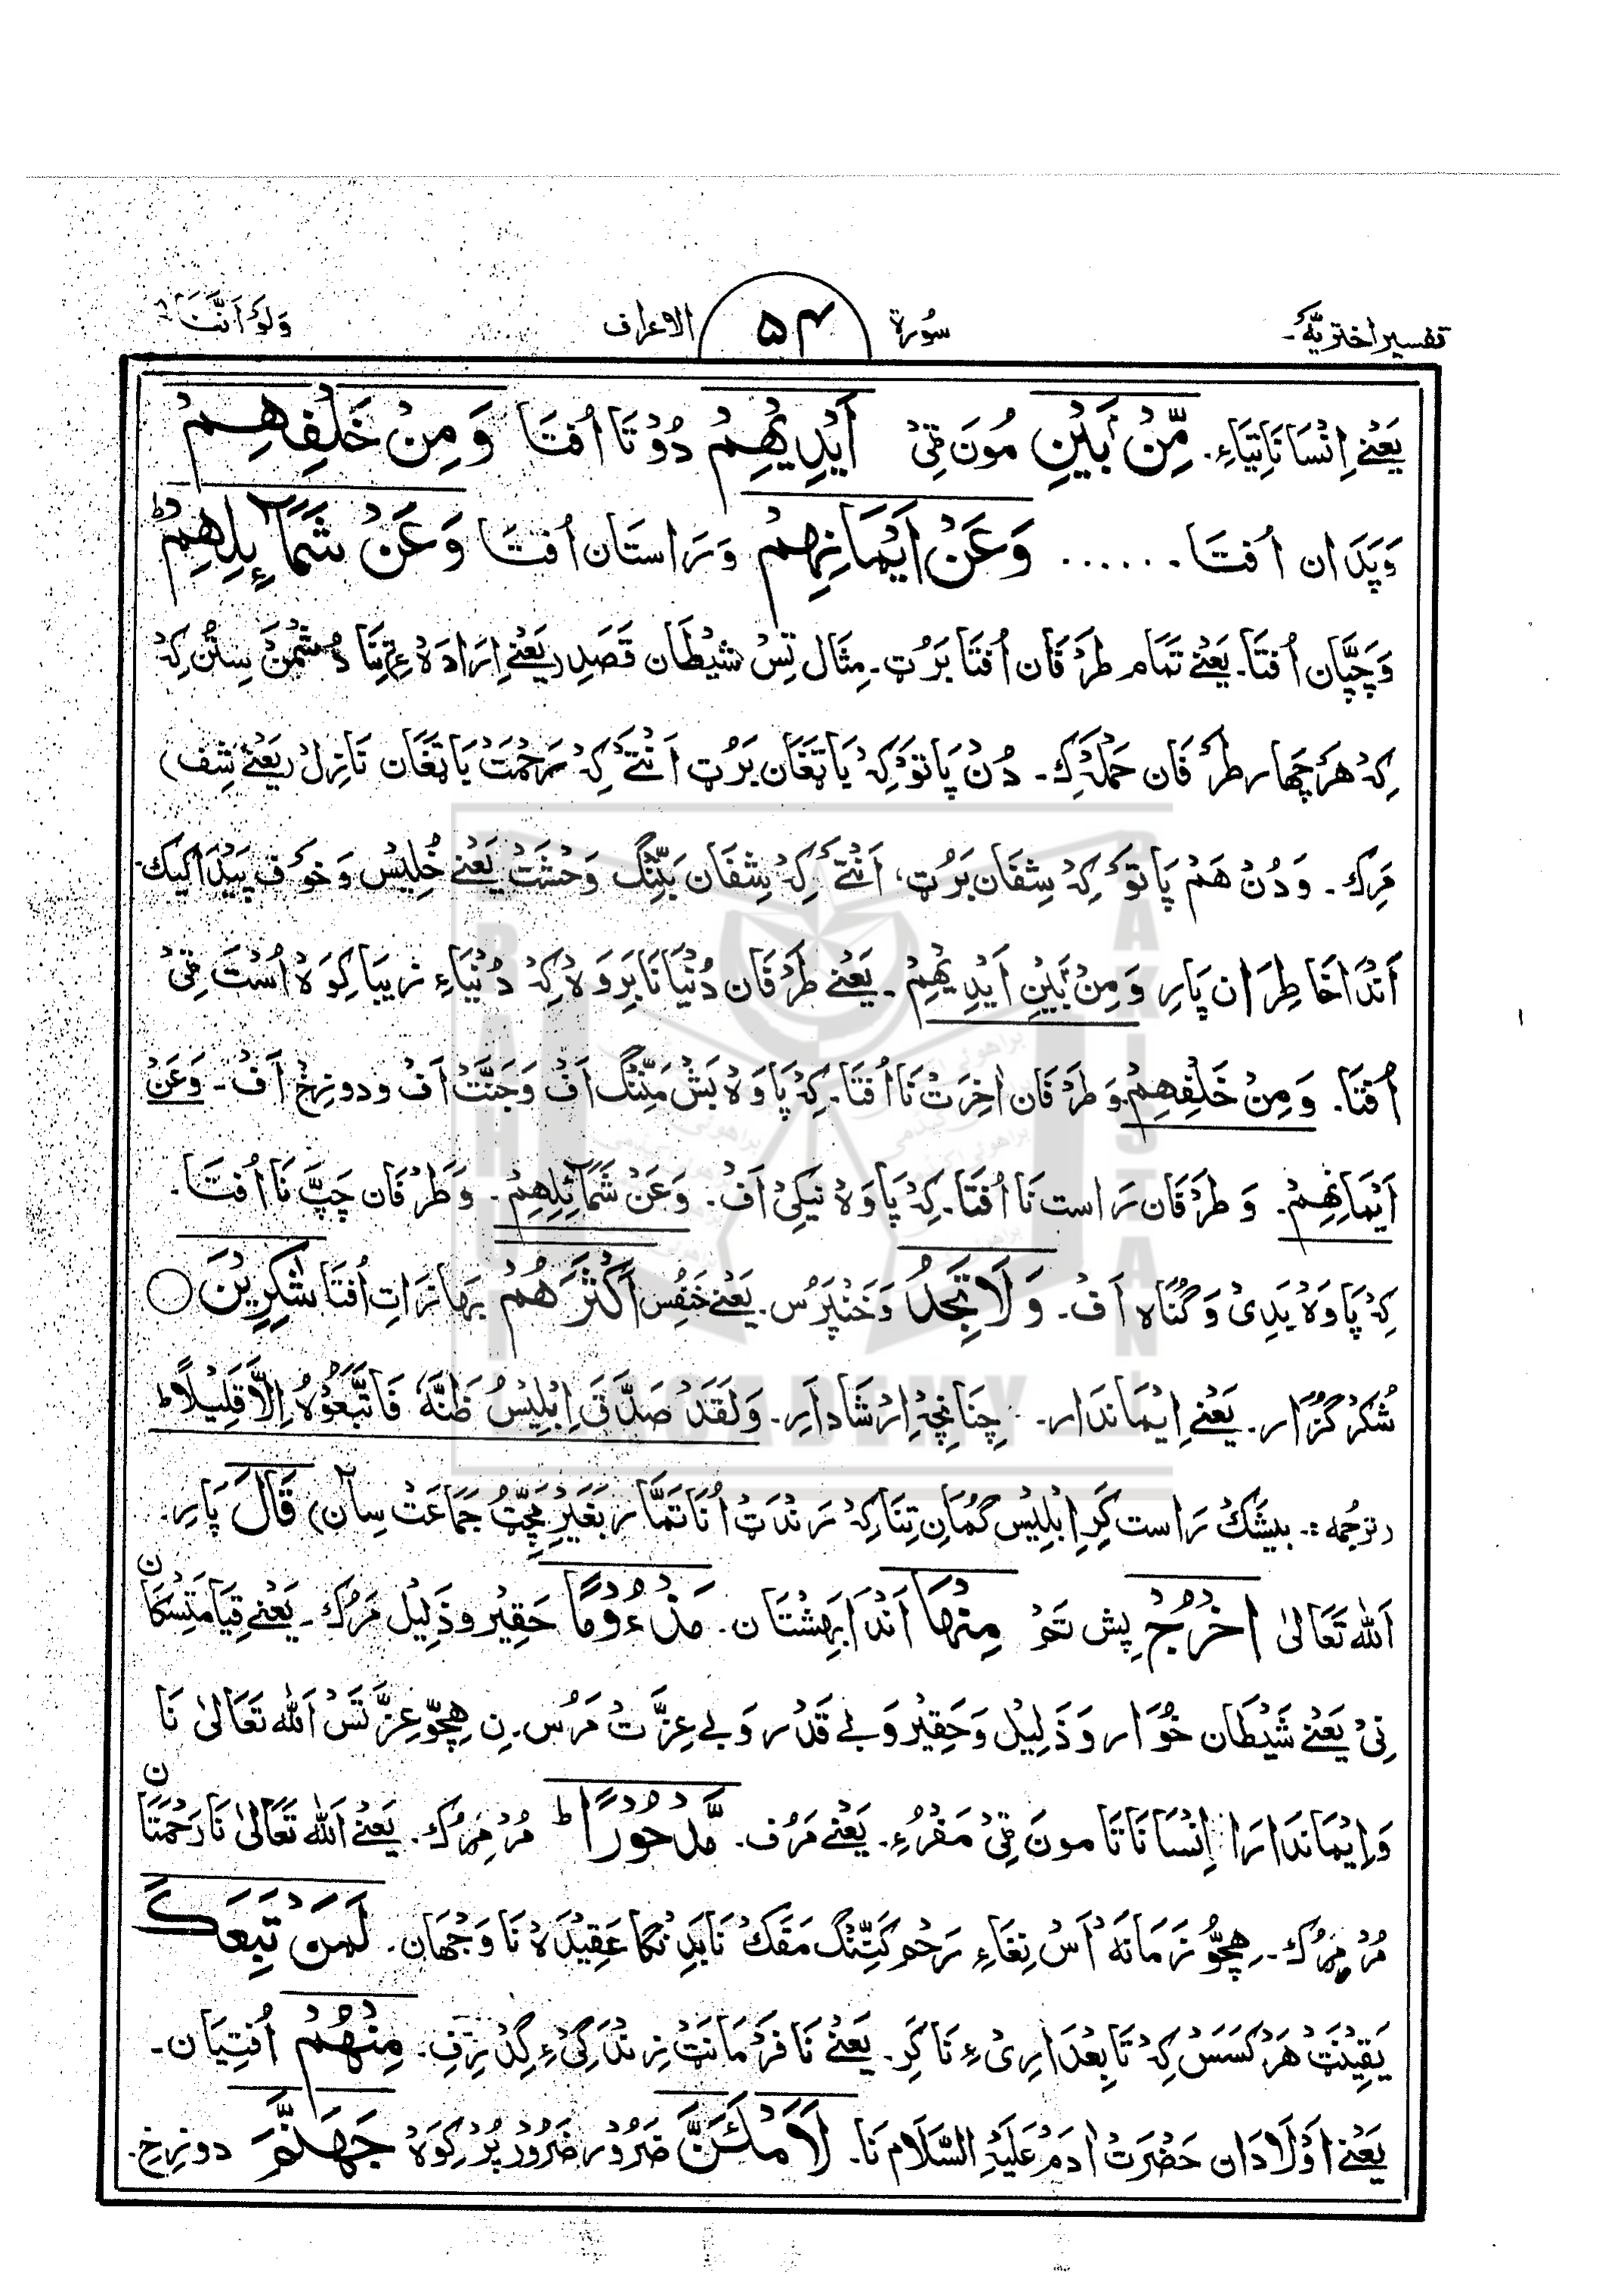 تفسیر اختریہ۔ سُورۃ ۵۴ الاعراف وَلَوْ اَنَّنَا ۸
یَعْنےِ اِنْسَانَاتِیَاءِ. مِّنْۢ بَیْنِ مُونَ ٹِیْ اَیْدِیْھِمْ دُوْ تَا اُفتَا وَ مِنْ خَلْفِھِمْ
وَپَدَان اُفتَا۔...... وَعَنْ اَیْمَانِھِمْ وَرَاستَان اُفتَا وَعَنْ شَمَآئِلِھِمْ ؕ
وَچَپَّان اُفتَا۔ یَعْنےِ تَمَام طَرْفَان اُفتَا بَرُٹ۔ مِثَال تِسْ شیْطَان قَصَدِ (یَعْنےِ اِرَادَہْ ءِ) تِنَا دُشْمَنْ سِتُنْ کِہْ
کِہْ ھَرْ چَھار طَرْفَان حَملَہْ کِ۔ دُنْ پَاتَوْ کِہْ یَا تَغَان بَرُٹ اَنْتَےْ کِہْ رَحْمَتْ یَا تَغَان نَازِلْ (یَعْنےِ شِف)
مَرِک۔ وَ دُنْ ھَمْ پَاتَوْ کِہْ شِفَان بَرُٹ، اَنْتَےْ کِہْ شِفَان بَنِّنْگ وَحْشَتْ یَعْنےِ خُلِیْس وَ خَوْف پَیْدَا کیک۔
اَنْدَا خَاطِرَان پَارِ وَ مِنْۢ بَیْنِ اَیْدِیْھِمْ۔ یَعْنےِ طَرْفَان دُنْیَا نَا بَرَوَہْ کِہْ دُنْیَاءِ زِیبَا کِوَہْ اُسْتَ ٹِیْ
اُفتَا۔ وَ مِنْ خَلْفِھِمْ وَ طَرْفَان اٰخِرَتْ نَا اُفتَا۔ کِہْ پَا وَہْ بَشْ مَنِّنْگ اَفْ وَ جَنَّتْ اَفْ وَ دوزِخْ اَفْ۔ وَعَنْ
اَیْمَانِھِمْ۔ وَ طَرْفَان رَاست نَا اُفتَا۔ کِہْ پَا وَہْ نیکِیْ اَفْ۔ وَعَنْ شَمَآئِلِھِمْ۔ وَ طَرْفَان چَپَّ نَا اُفتَا۔
کِہْ پَا وَہْ بَدِیْ وَ گُنَاہ اَفْ۔ وَ لَا تَجِدُ وَ خَنْپَرُس۔ یَعْنےِ خَنْفُس اَکْثَرَھُمْ بَھَازَاتِ اُفتَا شٰکِرِیْنَ ○
شُکْر گُزَار۔ یَعْنےِ اِیْمَاندَار۔ چِنَانْچِہْ اِرْشَادِ اَرِ۔ وَلَقَدْ صَدَّقَ اِبْلِیْسُ ظَنَّہٗ فَاتَّبَعُوْہُ اِلَّا قَلِیْلًا ؕ
(ترجُمہ :۔ بیشَکْ رَاست کَرِ اِبْلِیْس گُمَانِ تِنَا کِہْ رَنْدَٹْ اُنَا تَمَّار بَغَیْر مَچِّٹْ جَمَاعَتْ سِآن) قَالَ پَارِ۔
اَللّٰہ تَعَالیٰ اخْرُجْ پِیش تَمْ مِنْھَا اَنْدَا بَہِشْتَان۔ مَذْءُوْمًا حَقِیْر وَ ذَلِیْل مَرُک۔ یَعْنےِ قِیَامَتِسْکَان
نِیْ یَعْنےِ شَیْطَان خُوَار وَ ذَلِیْل وَ حَقِیْر وَ بے قَدْر وَ بے عِزَّتْ مَرُس۔ نِ ھِچّوْ عِزَّتَسْ اَللّٰہ تَعَالیٰ نَا
وَ اِیْمَاندَارَا اِنْسَانَاتَا مونَ ٹِیْ مَفْرُءِ۔ یَعْنےِ مَرُف۔ مَّدْحُوْرًا ؕ مُرْ مَرُک۔ یَعْنےِ اَللّٰہ تَعَالیٰ نَا رَحْمَتَان
مُرْ مَرُک۔ ھِچُّوْ زَمَانَہْ اَسْ نِغَاءِ رَحْم کَنِّنْگ مَفَکْ نَا بَدِ نْکَا عَقِیْدَہْ نَا وَجْھَان۔ لَمَنْ تَبِعَكَ
یَقِیْنَٹْ ھَرْ کَسَسْ کِہْ تَابِعْدَارِیْ ءِ نَا کَرِ۔ یَعْنےِ نَا فَرْمَانَٹْ زِنْدَگِیْ ءِ گِدْ رِفِ۔ مِنْھُمْ اُفتِیَان۔
یَعْنےِ اَوْلَادَان حَضْرَتْ اٰدَمْ عَلَیْہِ السَّلَام نَا۔ لَاَمْلَـَٔنَّ ضَرُوْر ضَرُوْر پُرْ کِوَہْ جَھَنَّمَ دوزِخِ۔